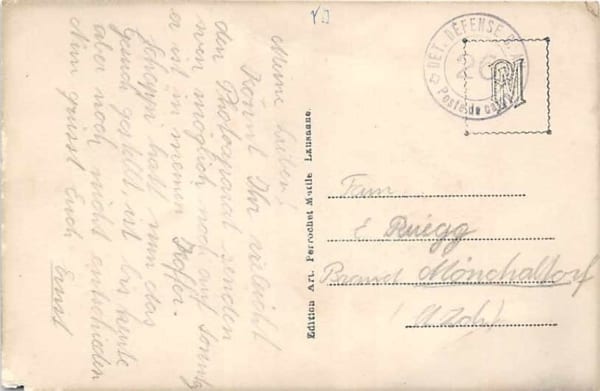 Meine Lieben!
Könnt Ihr vielleicht
den Photoaparat senden
wen möglich noch auf Sonntg
er ist in meinem Koffer.
Schoppi hatt nun das
Gesuch gestellt, ist bis heute
aber noch nicht entschieden
Nun grüsst Euch Ernst
Edition Art. Perrochet Matile Lausanne.
DET. DÉFENSE
26
Poste de camp
PM
Fam.
E Rüegg
Mönchaltorf